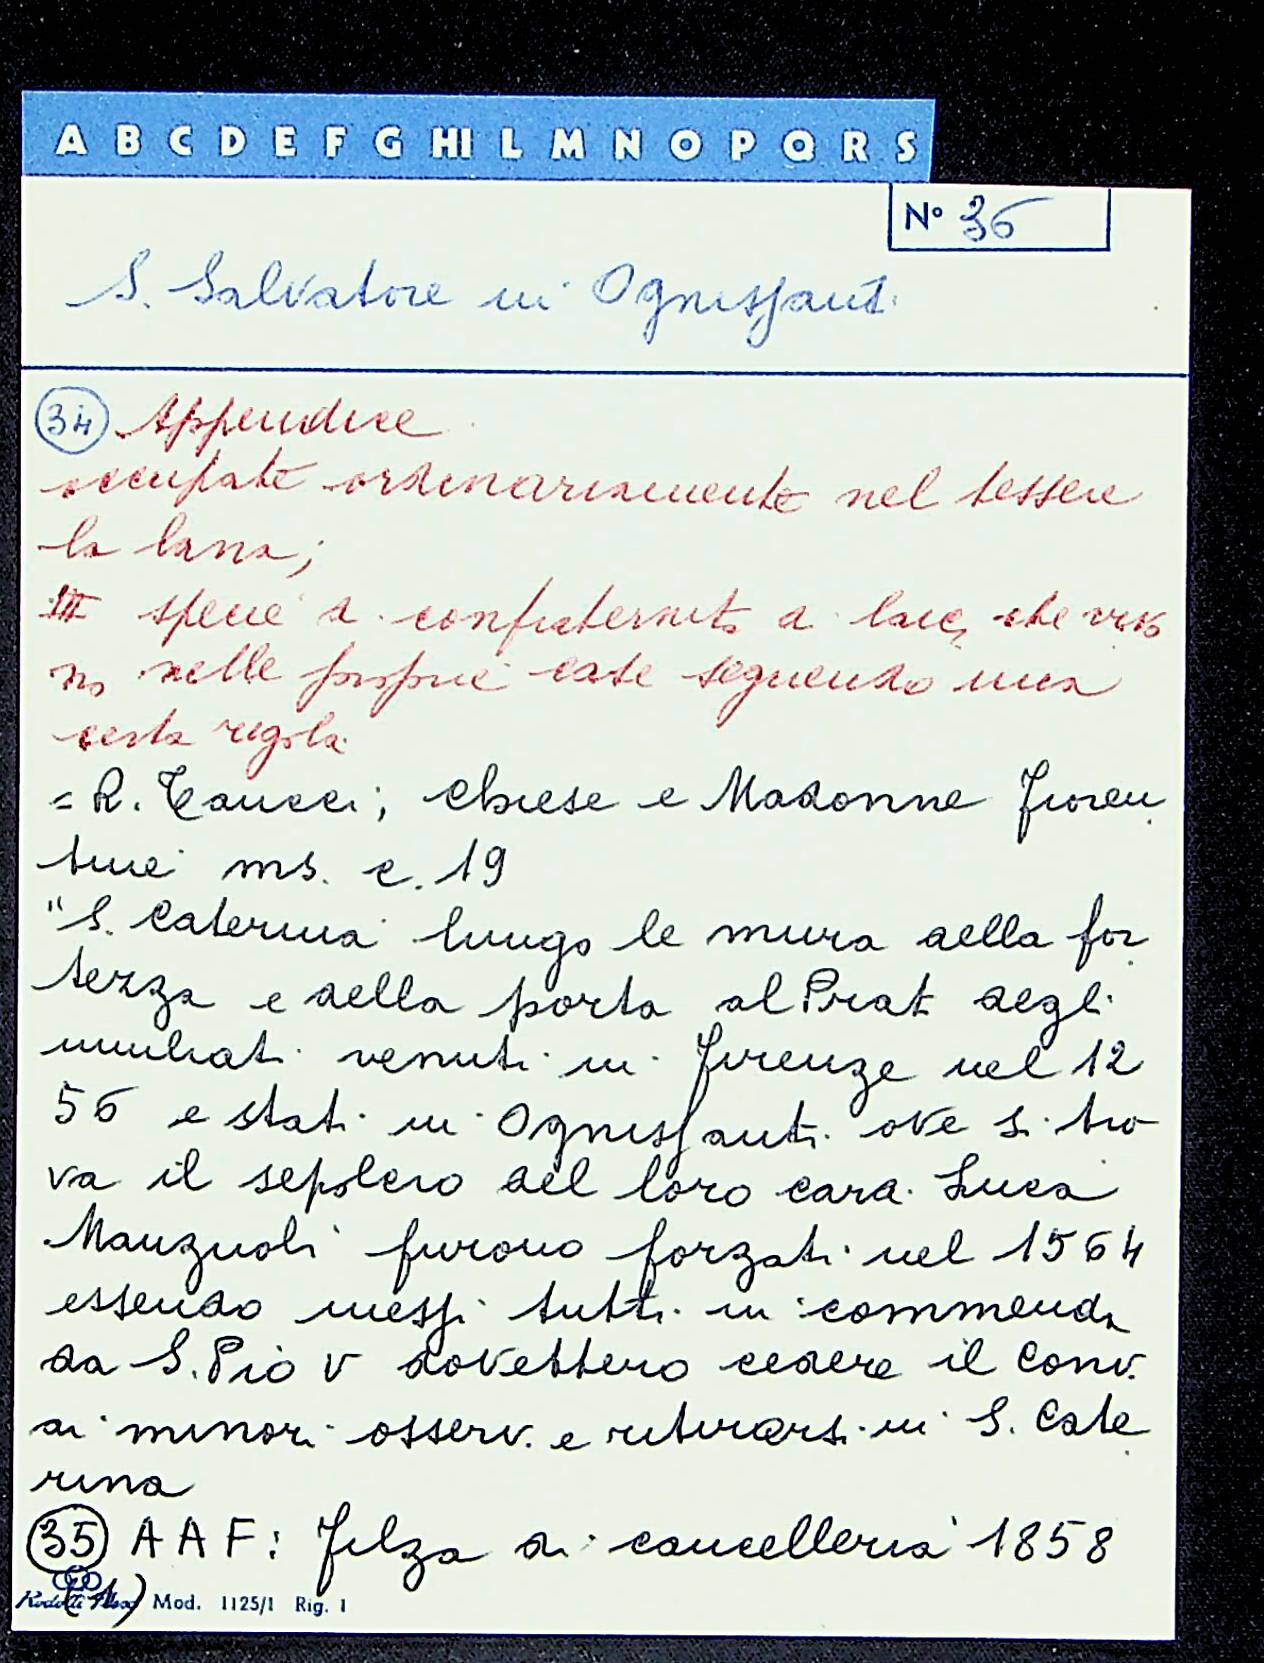 A B C D E F G HI L M N O P Q R S
N° 36
S. Salvatore in Ognissanti
34 Appendice
occupate ordinariamente nel tessere
la lana;
III specie di confraternita di laici che vivo
no nelle proprie case seguendo una
certa regola
= R. Taucci; Chiese e Madonne Fioren
tine ms. c. 19
"S. Caterina lungo le mura della for
tezza e della porta al Prato degli
umiliati venuti in Firenze nel 12
56 e stati in Ognissanti ove si tro-
va il sepolcro del loro card. Luca
Manzuoli furono forzati nel 1564
essendo messi tutti in commenda
da S. Pio V dovettero cedere il conv.
ai minori osserv. e ritirarsi in S. Cate
rina
35 AAF: Filza di cancelleria 1858
(1)
Mod. 1125/1 Rig. 1